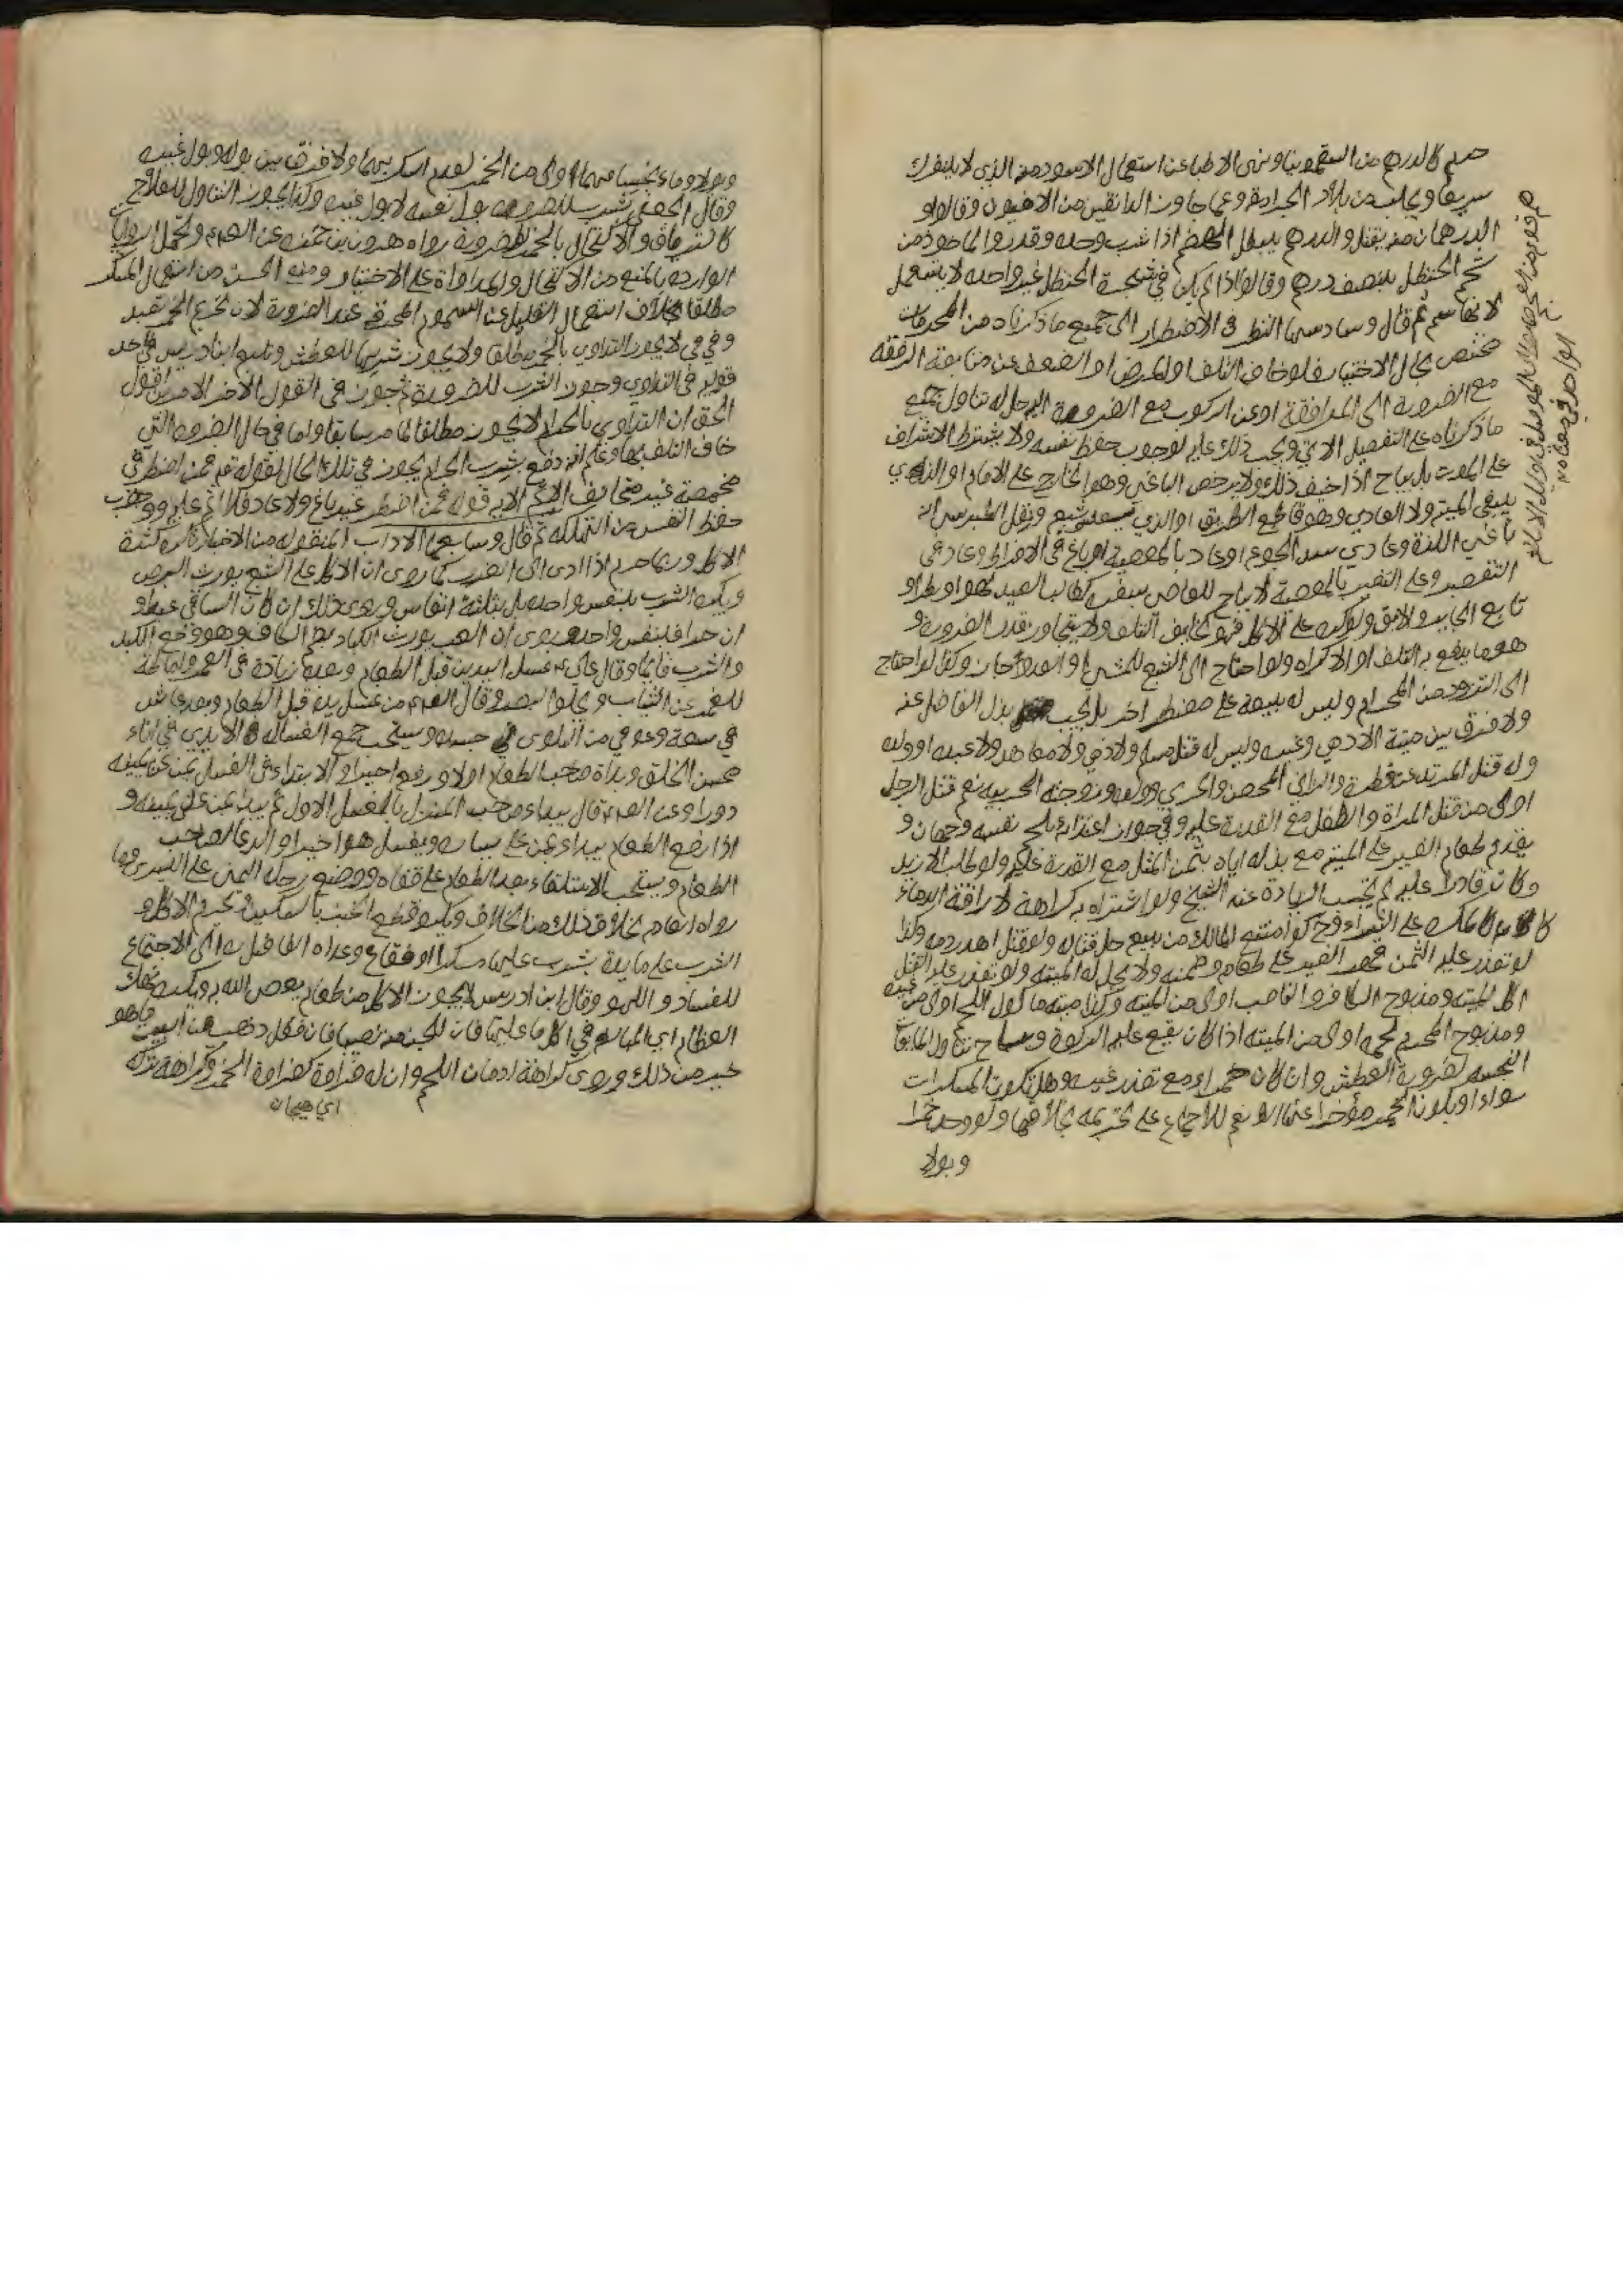 حرم كالدرهم من السقمونيا ونهى الاطبا عن استعمال الاسود منه الذي لا ينفرك
سريعا ويجلب من بلاد الجرامقة وعما جاوز الدانقين من الافيون وقالوا و
الدرهمان منه يقتل والدرهم يبطل الهضم اذا شرب وحده وقدروا الماخوذ من
شحم الحنظل بنصف درهم وقالوا اذا لم يكن في شجرة الحنظل غير واحدة لا يستعمل
لانها سم ثم قال وسادسها النظر في الاضطرار الى جميع ما ذكرناه من المحرمات
مختص بحال الاختيار فلو خاف التلف او المرض او الضعف عن متابعة الرفقة
مع الضرورة الى المرافقة او عن الركوب مع الضرورة اليه حل له تناول جميع
ما ذكرناه على التفصيل الاتي ويجب ذلك عليه لوجوب حفظ نفسه ولا يشترط الاشراف
على الموت بل يباح اذا خيف ذلك ولا يرخص الباغي وهو الخارج على الامام او الذي
يبغي الميتة ولا العادي وهو قاطع الطريق او الذي يعدو شبعه ونقل الطبرسي انه
باغي اللذة وعادي سد الجوع او عاد بالمعصية او باغ في الافراط وعاد في
التقصير وعلى التفسير بالمعصية لا يباح للعاصي بسفره كطالب الصيد لهوا وبطرا و
تابع الجاير والابق ولو اكره على الاكل فهو كخايف التلف ولا يتجاوز قدر الضرورة و
هو ما يدفع به التلف او الاكراه ولو احتاج الى الشبع للمشي او العدو جاز وكذا لو احتاج
الى التزود من الحرام وليس له بيعه على مضطر اخر بل يجب بذل الفاضل عنه
ولا فرق بين ميتة الادمي وغيره وليس له قتل مسلم ولا ذمي ولا معاهد ولا عبده او ولده
وله قتل المرتد عن فطرة والزاني المحصن والحربي وولده وزوجته الحربية نعم قتل الرجل
اولى من قتل المراة والطفل مع القدرة عليه وفي جواز اغتذائه بلحم نفسه وجهان و
يقدم طعام الغير على الميتة مع بذله اياه بثمن المثل مع القدرة عليه ولو طلب الازيد
وكان قادرا عليه لم تجب الزيادة عند الشيخ ولو اشتراه به كراهة لاراقة الدماء
على الشراء وح لو امتنع المالك من بيعه حل قتاله ولو قتل اهدر دمه وكذا
لو تعذر عليه الثمن قهر الغير على طعامه وضمنه ولا يحل له الميتة ولو تعذر عليه القتل
اكل الميتة ومذبوح الكافر والناصب اولى من الميتة وكذا ميتة ماكول اللحم اولى من غيره
ومذبوح المحرم لحمه اولى من الميتة اذا كان يقع عليه الذكوة ويباح تناول المايعات
النجسة لضرورة العطش وان كان خمرا مع تعذر غيره وهل تكون المسكرات
سواء او يكون الخمر مؤخرا عنها الا نعم للاجماع على تحريمه بخلافها ولو وجد خمرا
وبولا
وبولا وماء نجسا فهما اولى من الخمر لعدم اسكار بهما ولا فرق بين بوله وبول غيره
وقال الجعفي يشرب للضرورة بول نفسه لا بول غيره وكذا يجوز التناول للعلاج
كالترياق والاكتحال بالخمر للضرورة رواه هرون بن حمزه عن الص ويحمل الروايات
الواردة بالمنع من الاكتحال والمداواة على الاختيار ومنع الحسن من استعمال المسكر
مطلقا بخلاف استعمال القليل من السموم المحرقة عند الضرورة لان تحريم الخمر تعبد
وفي ف لا يجوز التداوي بالخمر مطلقا ولا يجوز شربها للعطش وتابع ابن ادريس في احد
قوليه في التداوي وجوز الشرب للضرورة ثم جوز في القول الاخر الامرين اقول
الحق ان التداوي بالحرام لا يجوز مطلقا لما مر سابقا واما في حال الضرورة التي
خاف التلف بها وعلم انه دفع بشرب الحرام يجوز في تلك الحال لقوله تع فمن اضطر في
مخمصة غير متجانف لاثم الاية قوله فمن اضطر غير باغ ولا عاد فلا اثم عليه ووجوب
حفظ النفس من التهلكه ثم قال وسابعها الاداب المنقولة من الاخبار تكره كثرة
الاكل وربما حرم اذا ادى الى الضرر كما روى ان الاكل على الشبع يورث البرص
ويكره الشرب بنفس واحد بل بثلثة انفاس وروى ذلك ان كان الساقي عبدا و
ان حرا فبنفس واحد وروى ان العب يورث الكباد بضم الكاف وهو وجع الكبد
والشرب قايما وقال علي ع غسل اليدين قبل الطعام وبعده زيادة في العمر واماطة
للغمر عن الثياب ويجلوا البصر وقال الص من غسل يده قبل الطعام وبعده عاش
في سعة وعوفي من البلوى في جسده ويستحب جمع الغسالة الايدي في اناء
يحسن الخلق وبداة صاحب الطعام اولا ورفع اخيرا والابتداء في الغسل بمن عن يمينه
دورا وعن الص قال يبداء صاحب المنزل بالغسل الاول ثم يبداء بمن على يمينه و
اذا رفع الطعام يبداء بمن على يساره ويغسل هو اخيرا والدعاء لصاحب
الطعام ويستحب الاستلقاء بعد الطعام على قفاه ووضع رجله اليمنى على اليسرى وما
رواه العامه بخلاف ذلك من الخلاف ويكره قطع الخبز بالسكين ويحرم الاكل و
الشرب على مايدة يشرب عليها مسكر او فقاع وعداه الفاضل ره الى الاجتماع
للفساد واللهو وقال ابن ادريس لا يجوز الاكل من طعام يعصى الله به ويكره نهك
العظام اي المبالغة في اكل ما عليها فان للجن منه نصيبا فان فعل ذهب من البيت ما هو
خير من ذلك وروى كراهة ادمان اللحم وان له ضراوة كضراوة الخمر وكراهة تركه
اي هيجان